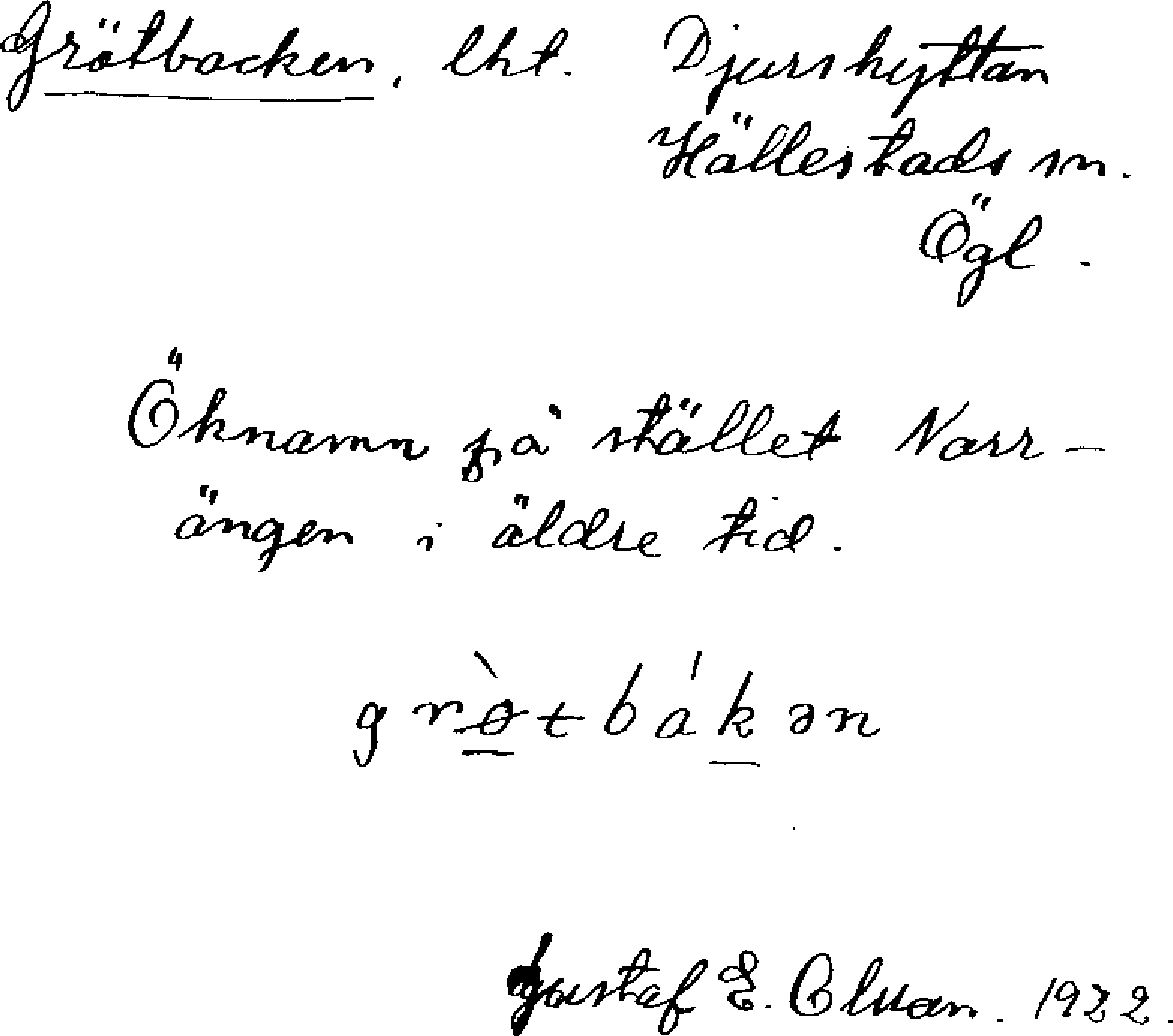 Grötbacken, lht. Djurshyttan
Hällestads sn.
Ögl.
Öknamn på stället Norr-
ängen i äldre tid.
grø̀tbákən
Gustaf E. Olsson. 1922.